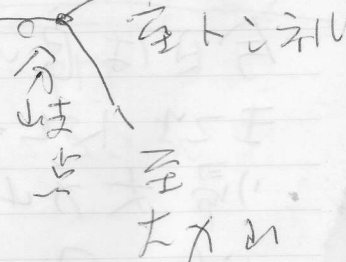 至トンネル
分岐点
至
大メ山